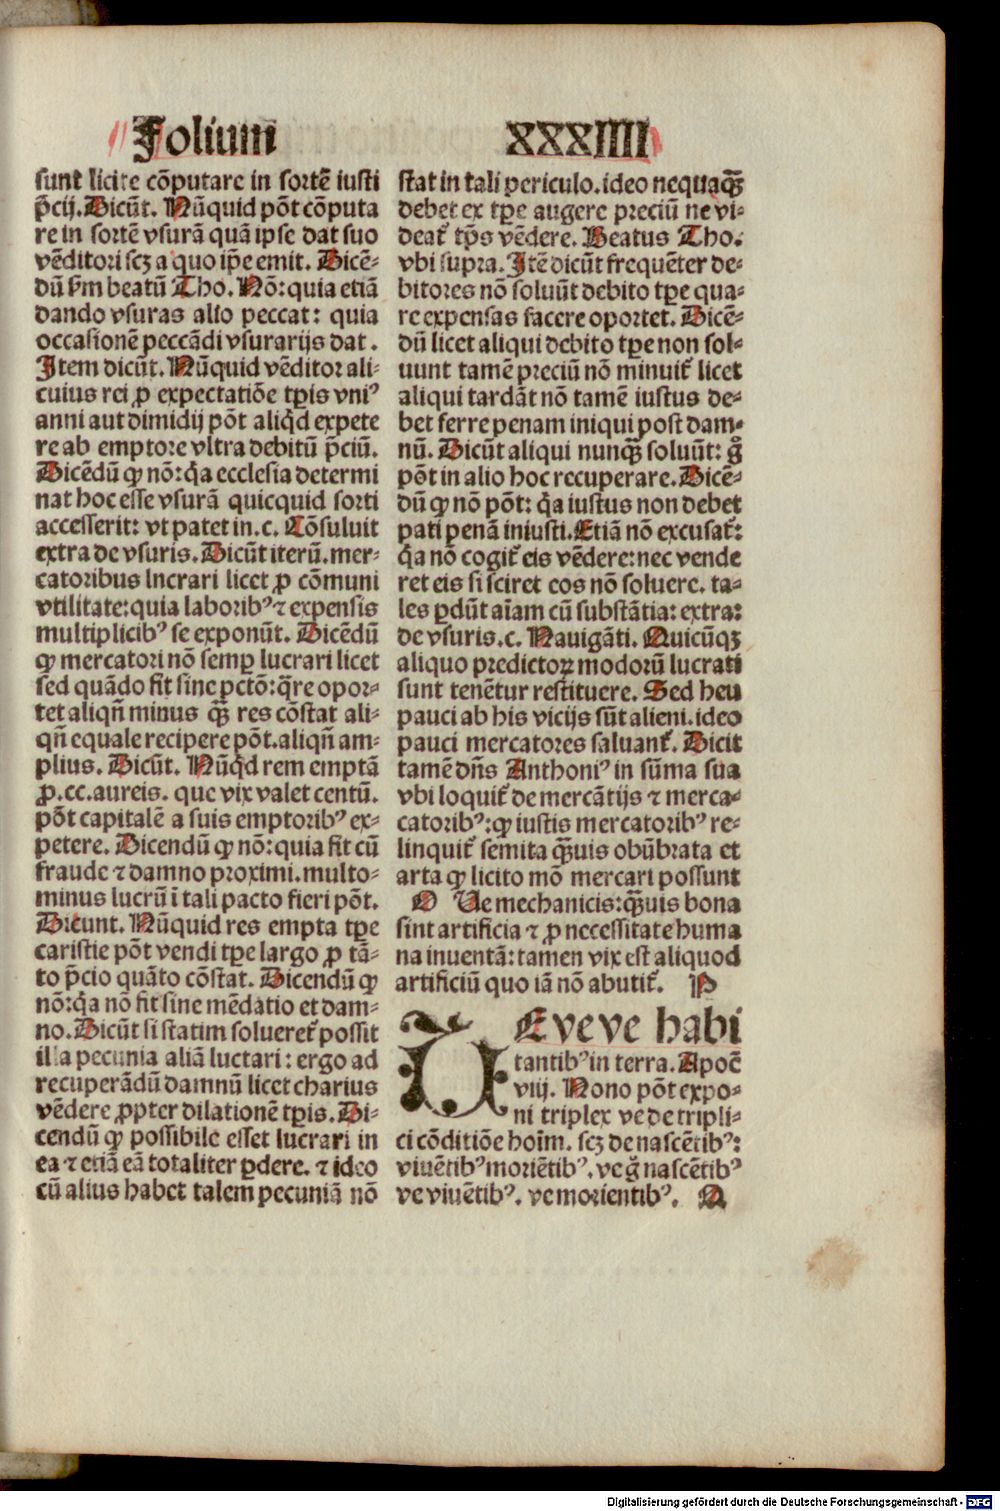 Folium XXXIIII
sunt licite cōputare in sortē iusti
p̄cij. Dicūt. Nūquid pōt cōputa
re in sortē vsurā quā ipse dat suo
vēditori scꝫ a quo ip̄e emit. Dicē⸗
dū ẜm beatū Tho. Nō: quia etiā
dando vsuras alio peccat: quia
occasionē peccādi vsurarijs dat.
Item dicūt. Nūquid vēditor ali⸗
cuius rei ꝓ expectatiōe tꝑis vniꝰ
anni aut dimidij pōt aliqͥd expete
re ab emptore vltra debitū p̄ciū.
Dicēdū ꝙ nō: qͥa ecclesia determi
nat hoc esse vsurā quicquid sorti
accesserit: vt patet in .c. Cōsuluit
extra de vsuris. Dicūt iterū. mer⸗
catoribus lncrari licet ꝓ cōmuni
vtilitate: quia laboribꝰ ⁊ expensis
multiplicibꝰ se exponūt. Dicēdū
ꝙ mercatori nō semꝑ lucrari licet
sed quādo fit sine pctō: qͥre opor⸗
tet aliqn̄ minus qꝫ̄ res cōstat ali⸗
qn̄ equale recipere pōt. aliqn̄ am⸗
plius. Dicūt. Nūqͥd rem emptā
ꝓ .cc. aureis. que vix valet centū.
pōt capitalē a suis emptoribꝰ ex⸗
petere. Dicendū ꝙ nō: quia fit cū
fraude ⁊ damno proximi. multo⸗
minus lucrū ī tali pacto fieri pōt.
Dicunt. Nūquid res empta tꝑe
caristie pōt vendi tꝑe largo ꝓ tā⸗
to p̄cio quāto cōstat. Dicendū ꝙ
nō: qͥa nō fit sine mēdatio et dam⸗
no. Dicūt si statim solueret᷑ possit
illa pecunia aliā luctari: ergo ad
recuperādū damnū licet charius
vēdere ꝓpter dilationē tꝑis. Di⸗
cendū ꝙ possibile esset lucrari in
ea ⁊ etiā eā totaliter ꝑdere. ⁊ ideo
cū alius habet talem pecuniā nō
stat in tali periculo. ideo nequaqꝫ̄
debet ex tꝑe augere preciū ne vi⸗
deat᷑ tp̄s vēdere. Beatus Tho.
vbi supra. Itē dicūt frequēter de⸗
bitores nō soluūt debito tꝑe qua⸗
re expensas facere oportet. Dicē⸗
dū licet aliqui debito tꝑe non sol⸗
uunt tamē preciū nō minuit᷑ licet
aliqui tardāt nō tamē iustus de⸗
bet ferre penam iniqui post dam⸗
nū. Dicūt aliqui nunqꝫ̄ soluūt: gͦ
pōt in alio hoc recuperare. Dicē⸗
dū ꝙ nō pōt: qͥa iustus non debet
pati penā iniusti. Etiā nō excusat᷑:
qͥa nō cogit᷑ eis vēdere: nec vende
ret eis si sciret eos nō soluere. ta⸗
les ꝑdūt aīam cū substātia: extra:
de vsuris. c. Nauigāti. Quicūqꝫ
aliquo predictoꝝ modorū lucrati
sunt tenētur restituere. Sed heu
pauci ab his vicijs sūt alieni. ideo
pauci mercatores saluant᷑. Dicit
tamē dn̄s Anthoniꝰ in sūma sua
vbi loquit᷑ de mercātijs ⁊ merca⸗
catoribꝰ: ꝙ iustis mercatoribꝰ re⸗
linquit᷑ semita qꝫ̄uis obūbrata et
arta ꝙ licito mō mercari possunt
O Ve mechanicis: qꝫ̄uis bona
sint artificia ⁊ ꝓ necessitate huma
na inuentā: tamen vix est aliquod
artificiū quo iā nō abutit᷑. P
UE ve ve habi
tantibꝰ in terra. Apoc̄
viij. Nono pōt expo⸗
ni triplex ve de tripli⸗
ci cōditiōe hoīm. scꝫ de nascētibꝰ:
viuētibꝰ moriētibꝰ. ve gͦ nascētibꝰ
ve viuētibꝰ. ve morientibꝰ. Q
Digitalisierung gefördert durch die Deutsche Forschungsgemeinschaft - DFG